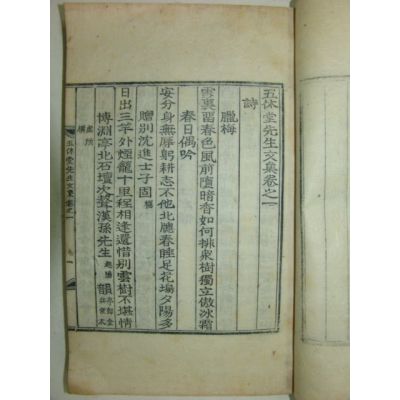 五休堂先生文集卷之一
詩
臘梅
雪裏習春色風前墮暗香如何排衆樹獨立傲冰霜
春日偶吟
安分身無辱躬耕志不他北牕春睡足花塢夕陽多
贈別沈進士子固
日出三竿外煙籠十里程相逢還惜別雲樹不堪情
博淵亭北石壇次聱漢孫先生韻
五休堂先生文集卷之一